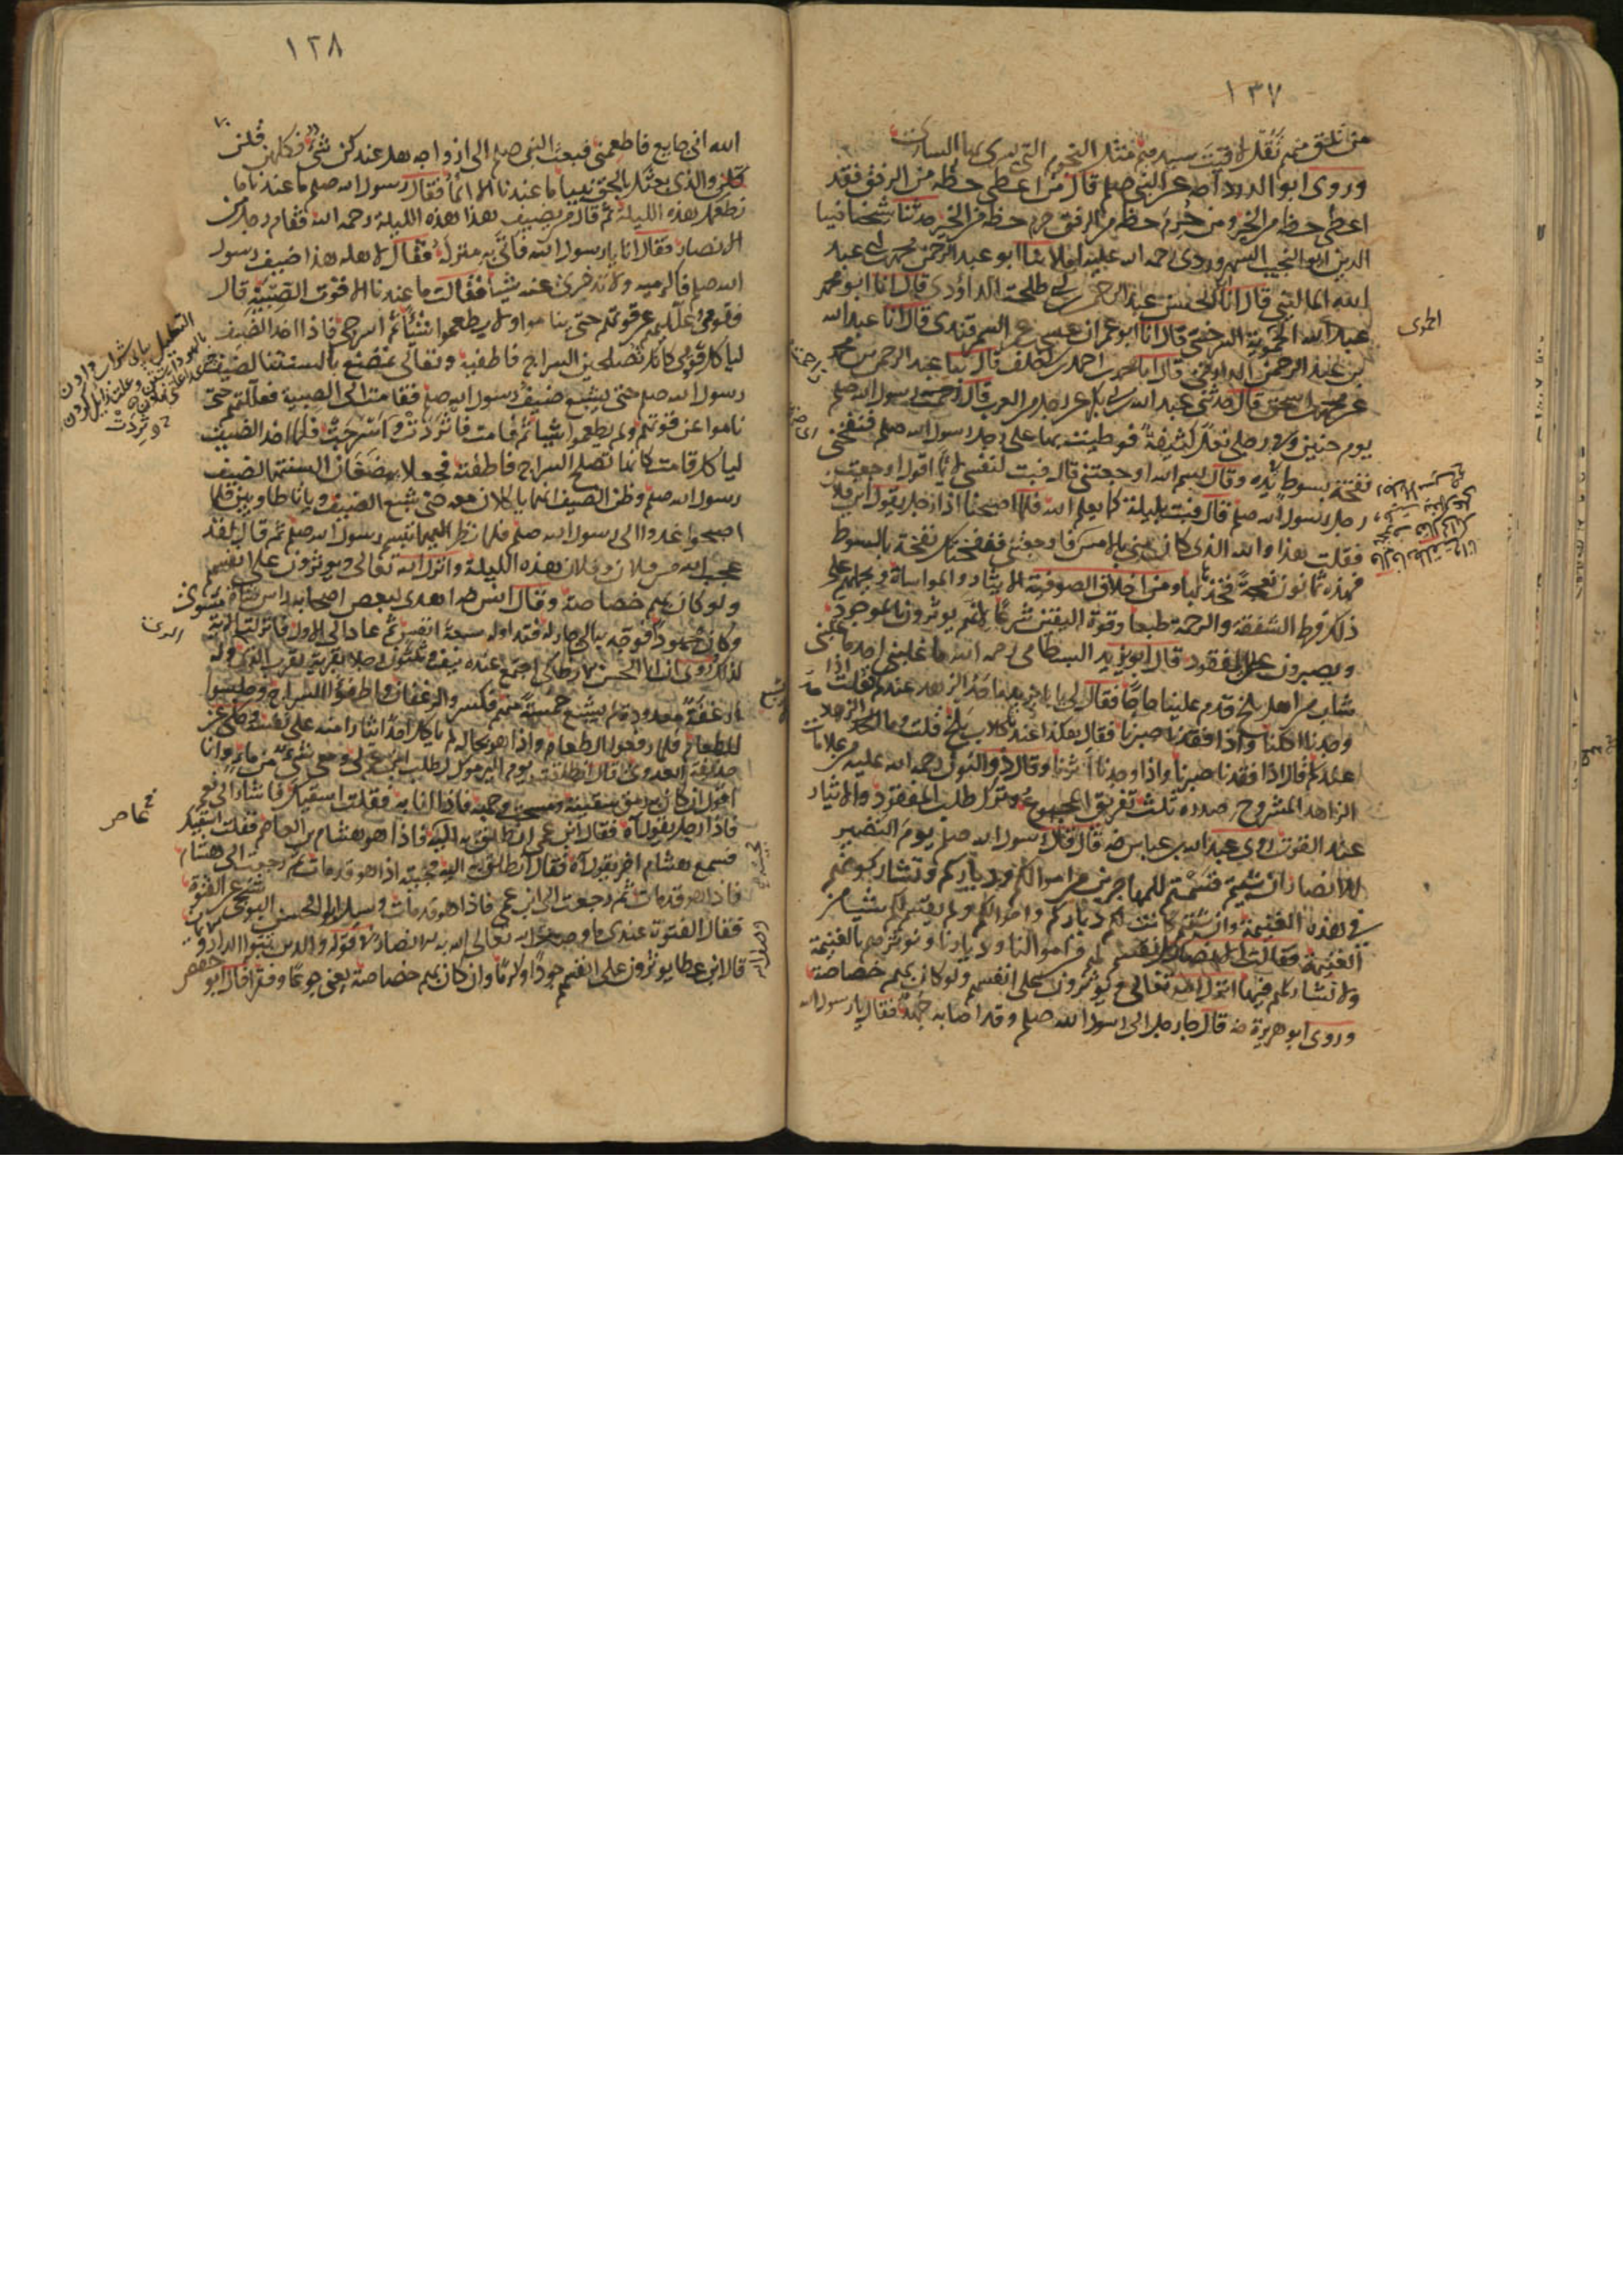 ١٣٧
من تلق منهم تقل لاقيت سيدهم مثل النجوم التي يسري بها الساري
وروى ابو الدرداء رضه عن النبي صلعم قال من اعطى حظه من الرفق فقد
اعطى حظه من الخير ومن حرم حظه من الرفق حرم حظه من الخير حدثنا شيخنا ضيا
الدين ابو النجيب السهروردى رحمه الله عليه املاء انا ابو عبد الرحمن محمد بن ابى عبد
الله الماليني قال انا ابو الحسن عبد الرحمن بن ابى طلحة الداودى قال انا ابو محمد
عبد الله الحموية السرخسى قال انا ابو عمران عيسى بن عمر السمرقندى قال انا عبد الله
بن عبد الرحمن الدارمى قال انا محمد بن احمد بن ابى خلف قال ثنا عبد الرحمن بن محمد
عن محمد بن اسحق قال حدثنى عبد الله بن ابى بكر عن رجل من العرب قال زحمت رسول الله صلعم
يوم حنين وفى رجلى نعل كثيفة فوطئت بها على رجل رسول الله صلعم فنفحنى
نفحة بسوط بيده وقال بسم الله اوجعتنى قال فبت لنفسى لائما اقول اوجعت
رجل رسول الله صلعم قال فبت بليلة كما يعلم الله فلما اصبحنا اذا رجل يقول اين فلان
فقلت هذا والله الذى كان منى بالامس فنفحتك نفحة بالسوط
فهذه ثمانون نعجة فخذها بها ومن اخلاق الصوفية الايثار والمواساة ويحملهم على
ذلك فرط الشفقة والرحمة طبعا وقوة اليقين شرعا لانهم يوثرون بالموجود
ويصبرون على المفقود قال ابو يزيد البسطامى رحمه الله ما غلبنى احد ما غلبنى
شاب من اهل بلخ قدم علينا حاجا فقال لى يا بايزيد ما حد الزهد عندكم فقلت اذا
وجدنا اكلنا واذا فقدنا صبرنا فقال هكذا عندنا كلاب بلخ قلت وما حد الزهد
عندكم قال اذا فقدنا صبرنا واذا وجدنا اثرنا وقال ذو النون رحمه الله عليه من علامات
الزاهد المشروح صدره ثلث تفريق المجموع وترك طلب المفقود والايثار
عند القوت روى عبد الله بن عباس رضه قال قال رسول الله صلعم يوم النضير
للانصار ان شيتم قسمتم للمهاجرين من اموالكم ودياركم وتشاركونهم
فى هذه الغنيمة وان شيتم كانت لكم دياركم واموالكم ولم يقسم لكم شيا من
الغنيمة فقالت الانصار بل نقسم لهم من اموالنا وديارنا ونوثرهم بالغنيمة
ولا نشاركهم فيها انزل الله تعالى ويوثرون على انفسهم ولو كان بهم خصاصة
وروى ابو هريرة رضه قال جا رجل الى رسول الله صلعم وقد اصابه جهد فقال يا رسول
١٣٨
الله انى جايع فاطعمنى فبعث النبى صلعم الى ازواجه هل عندكن شئ فكلهن قلن
والذى بعثك بالحق نبيا ما عندنا الا الماء فقال رسول الله صلعم ما عندنا ما
نطعمك هذه الليلة ثم قال من يضيف هذا هذه الليلة رحمه الله فقام رجل من
الانصار فقال انا يا رسول الله فاتى به منزله فقال لاهله هذا ضيف رسول
الله صلعم فاكرميه ولا تدخرى عنه شيا فقالت ما عندنا الا قوت الصبية قال
فقومى علليهم عن قوتهم حتى يناموا ولا يطعموا شيئا ثم اسرجى فاذا اخذ الضيف
لياكل قومى كانك تصلحين السراج فاطفيه وتعالى نمضغ بالسنتنا لضيف
رسول الله صلعم حتى يشبع ضيف رسول الله صلعم فقامت الى الصبية فعللتهم حتى
ناموا عن قوتهم ولم يطعموا شيا ثم قامت فاثردت واسرجت فلما اخذ الضيف
لياكل قامت كانها تصلح السراج فاطفئته فجعلا يمضغان السنتهما لضيف
رسول الله صلعم وظن الضيف انهما ياكلان معه حتى شبع الضيف وباتا طاويين فلما
اصبحوا غدوا الى رسول الله صلعم فلما نظر اليهما تبسم رسول الله صلعم ثم قال لقد
عجب الله من فلان وفلانة هذه الليلة وانزل الله تعالى ويوثرون على انفسهم
ولو كان بهم خصاصة وقال انس رضه اهدى لبعض اصحابه راس شاة مشوى
وكان مجهودا فوجه به الى جار له فتداوله سبعة انفس ثم عاد الى الاول فانزلت الاية
لذلك وروى ان ابا الحسن الانطاكى اجتمع عنده نيف وثلثون رجلا بقرية بقرب الرى وله
ارغفة معدودة لم يشبع خمسة منهم فكسروا الرغفان واطفؤا السراج وجلسوا
للطعام فلما رفعوا الطعام واذا هو بحاله لم ياكل احد ايثارا منه على نفسه وحكى عن
حذيفة العدوى قال انطلقت يوم اليرموك لطلب ابن عم لى ومعى شئ من ماء وانا
اقول ان كان به رمق سقيته ومسحت وجهه فاذا انا به فقلت اسقيك فاشار الى نعم
فاذا رجل يقول اه فقال ابن عمى انطلق به اليه فاذا هو هشام بن العاص فقلت اسقيك
فسمع هشام اخر يقول اه فقال انطلق به اليه فجيته اذا هو قد مات ثم رجعت الى هشام
فاذا هو قد مات ثم رجعت الى ابن عمى فاذا هو قد مات وسيل ابو الحسين البوشنجى عن الفتوة
فقال الفتوة عندى ما وصف الله تعالى به الانصار فى قوله والذين تبؤوا الدار والايمان
قال ابن عطا يوثرون على انفسهم جودا وكرما وان كان بهم خصاصة يعنى جوعا وفقرا قال ابو حفص